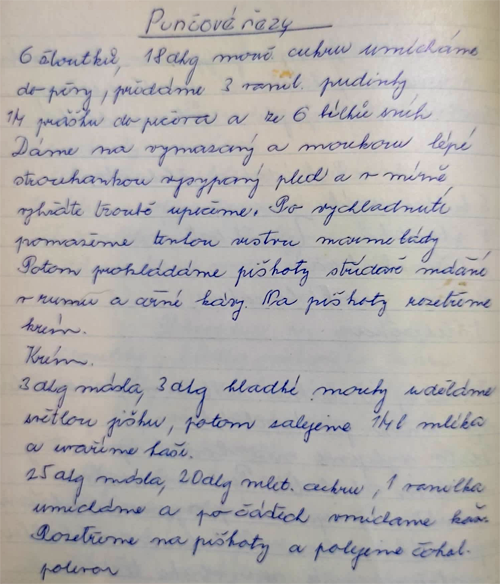 Punčové řezy
6 žloutků, 18 dkg mouč. cukru umícháme
do pěny, přidáme 3 vanil. pudinky,
1/4 prášku do pečiva a ze 6 bílků sníh
Dáme na vymazaný a moukou lépé
strouhankou vysypaný plech a v mírně
vyhřáté troubě upečeme. Po vychladnutí
pomažeme tenkou vrstvu marmelády
Potom prokládáme piškoty střídavě máčené
v rumu a černé kávy. Na piškoty rozetřeme
krém.
Krém.
3 dkg másla, 3 dkg hladké mouky uděláme
světlou jíšku, potom zalejeme 1/4 l mléka
a uvaříme kaši.
25 dkg másla, 20 dkg mlet. cukru, 1 vanilka
umícháme a po částech vmícháme kaši.
Rozetřeme na piškoty a polejeme čokol.
polevou